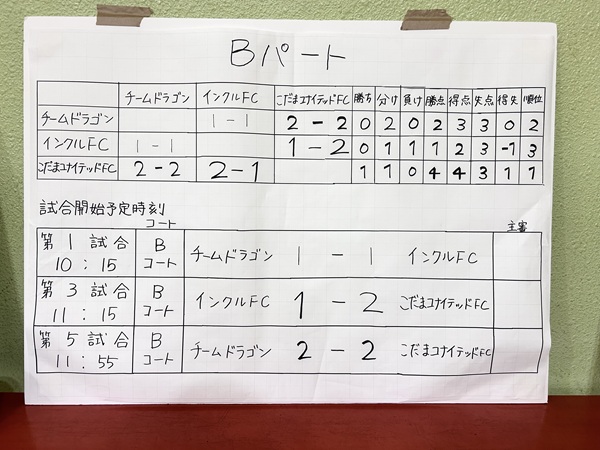 Bパート
チームドラゴン インクルFC こだまユナイテッドFC 勝ち 分け 負け 勝点 得点 失点 得失 順位
チームドラゴン 1-1 2-2 0 2 0 2 3 3 0 2
インクルFC 1-1 1-2 0 1 1 1 2 3 -1 3
こだまユナイテッドFC 2-2 2-1 1 1 0 4 4 3 1 1
試合開始予定時刻
コート 主審
第1試合 B チームドラゴン 1-1 インクルFC
10:15 コート
第3試合 B インクルFC 1-2 こだまユナイテッドFC
11:15 コート
第5試合 B チームドラゴン 2-2 こだまユナイテッドFC
11:55 コート